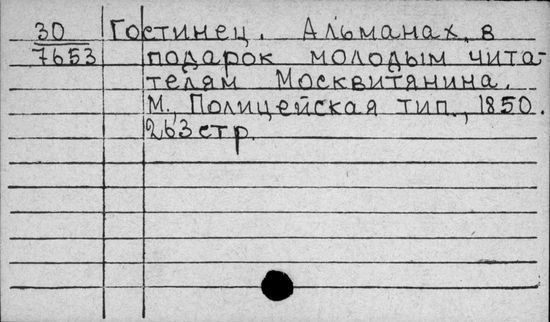 30 Гостинец. Альманах, в
7653 подарок молодым чита-
телям Москвитянина.
М., Полицейская тип., 1850.
263 стр.